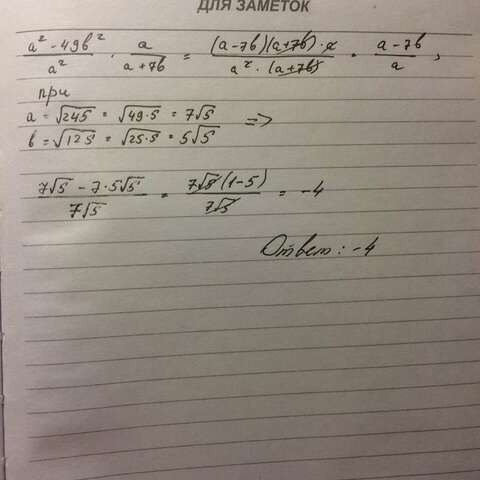 ДЛЯ ЗАМЕТОК
(a² - 49b²)/a² · a/(a + 7b) = ((a-7b)(a+7b)·a)/(a²·(a+7b)) = (a-7b)/a ,
при
a = √245 = √49·5 = 7√5
b = √125 = √25·5 = 5√5 =>
(7√5 - 7·5√5)/(7√5) = (7√5(1-5))/(7√5) = -4
Ответ: -4